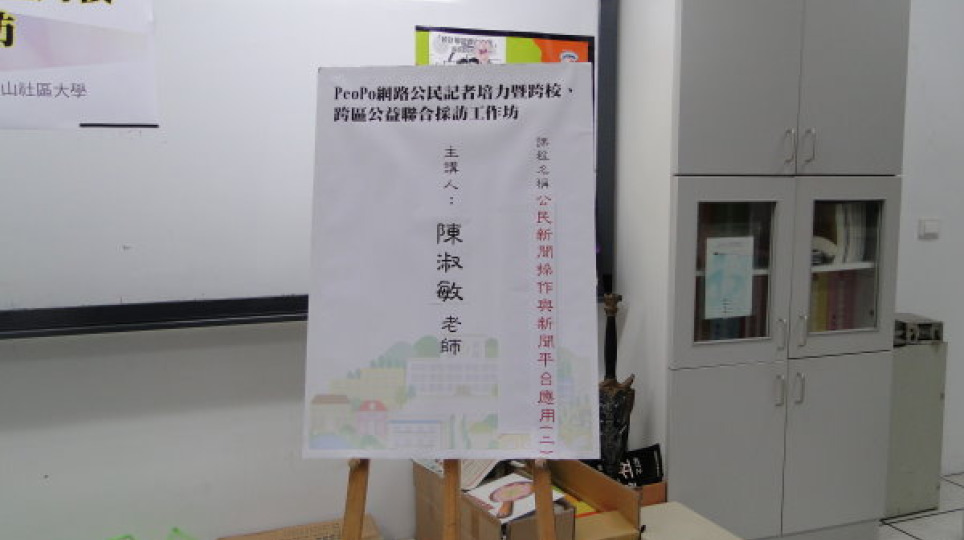 訪
山社區大學
PeoPo網路公民記者培力暨跨校、
跨區公益聯合採訪工作坊
課程名稱公民新聞操作與新聞平台應用(二)
主講人：陳淑敏老師